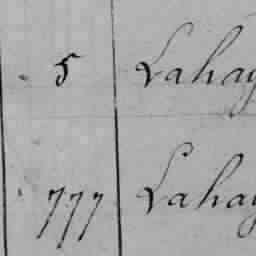 5 Lahay
777 Lahay